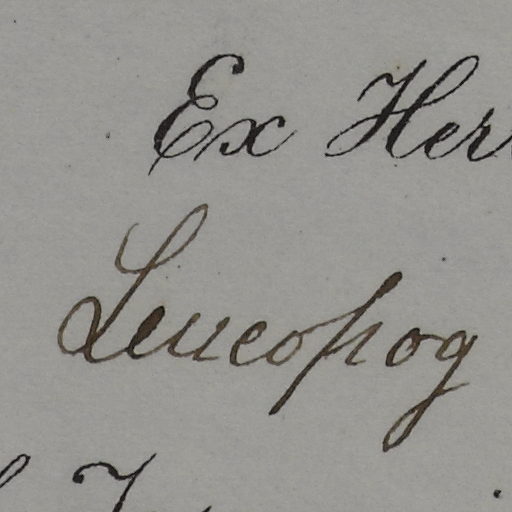 Ex Her
Leucopog